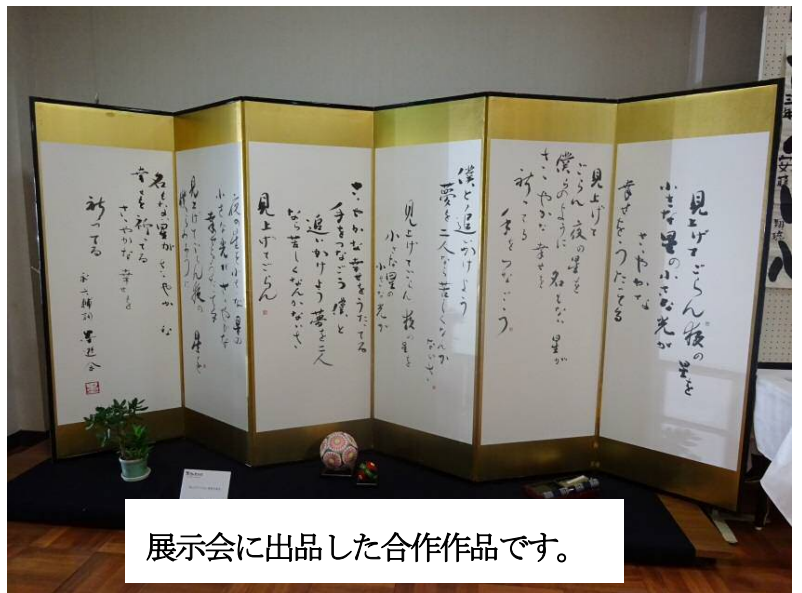 見上げてごらん夜の星を
小さな星の小さな光が
ささやかな
幸せをうたってる
見上げて
ごらん 夜の星を
僕らのように 名もない 星が
ささやかな 幸せを
祈ってる
手をつなごう
僕と 追いかけよう
夢を 二人なら 苦しくなんか
ないさ。
見上げてごらん 夜の星を
小さな星の
小さな光が
ささやかな 幸せをうたってる
手をつなごう 僕と
追いかけよう 夢を 二人
なら 苦しくなんかないさ
見上げてごらん
夜の星を 小さな 星の
小さな光が ささやかな
幸せをうたってる
見上げてごらん 夜の 星を
僕らのように
名もない星が ささやか な
幸せを 祈ってる
ささやかな 幸せを
祈ってる
永六輔詞
展示会に出品した合作作品です。